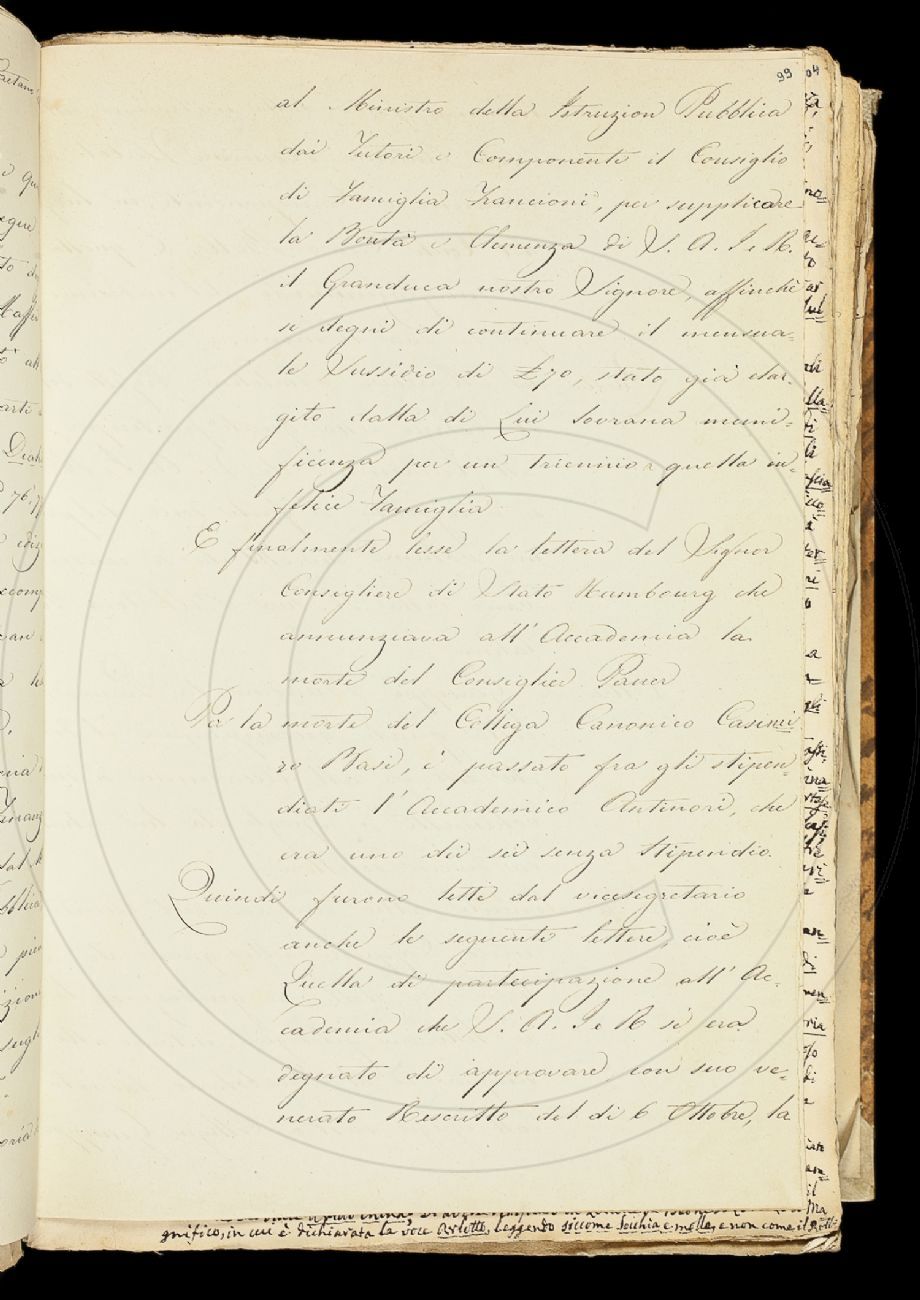 99
al Ministro della Istruzion Pubblica
dai Tutori e Componenti il Consiglio
di Famiglia Francioni, per supplicare
la Bontà e Clemenza di S. A. I. e R.
il Granduca nostro Signore, affinchè
si degni di continuare il mensua=
le Sussidio di £70, stato già elar-
gito dalla di Lui Sovrana muni=
ficenza per un triennio a quella in=
felice Famiglia
E finalmente lesse la lettera del Signor
Consigliere di Stato Humbourg che
annunziava all' Accademia la
morte del Consiglier Pauer
Per la morte del Collega Canonico Casimi
ro Basi, è passato fra gli stipen=
diati l' Accademico Antinori, che
era uno dei sei senza Stipendio.
Quindi furono letti dal vicesegretario
anche le seguenti lettere, cioè
Quella di partecipazione all' Ac=
cademia che S. A. I. e R. si era
degnato di approvare con suo ve=
nerato Rescritto del dì 6 Ottobre, la
gnifico, in cui è dichiarata la voce Arlotto, leggendo siccome Sochia e molle, e non come il